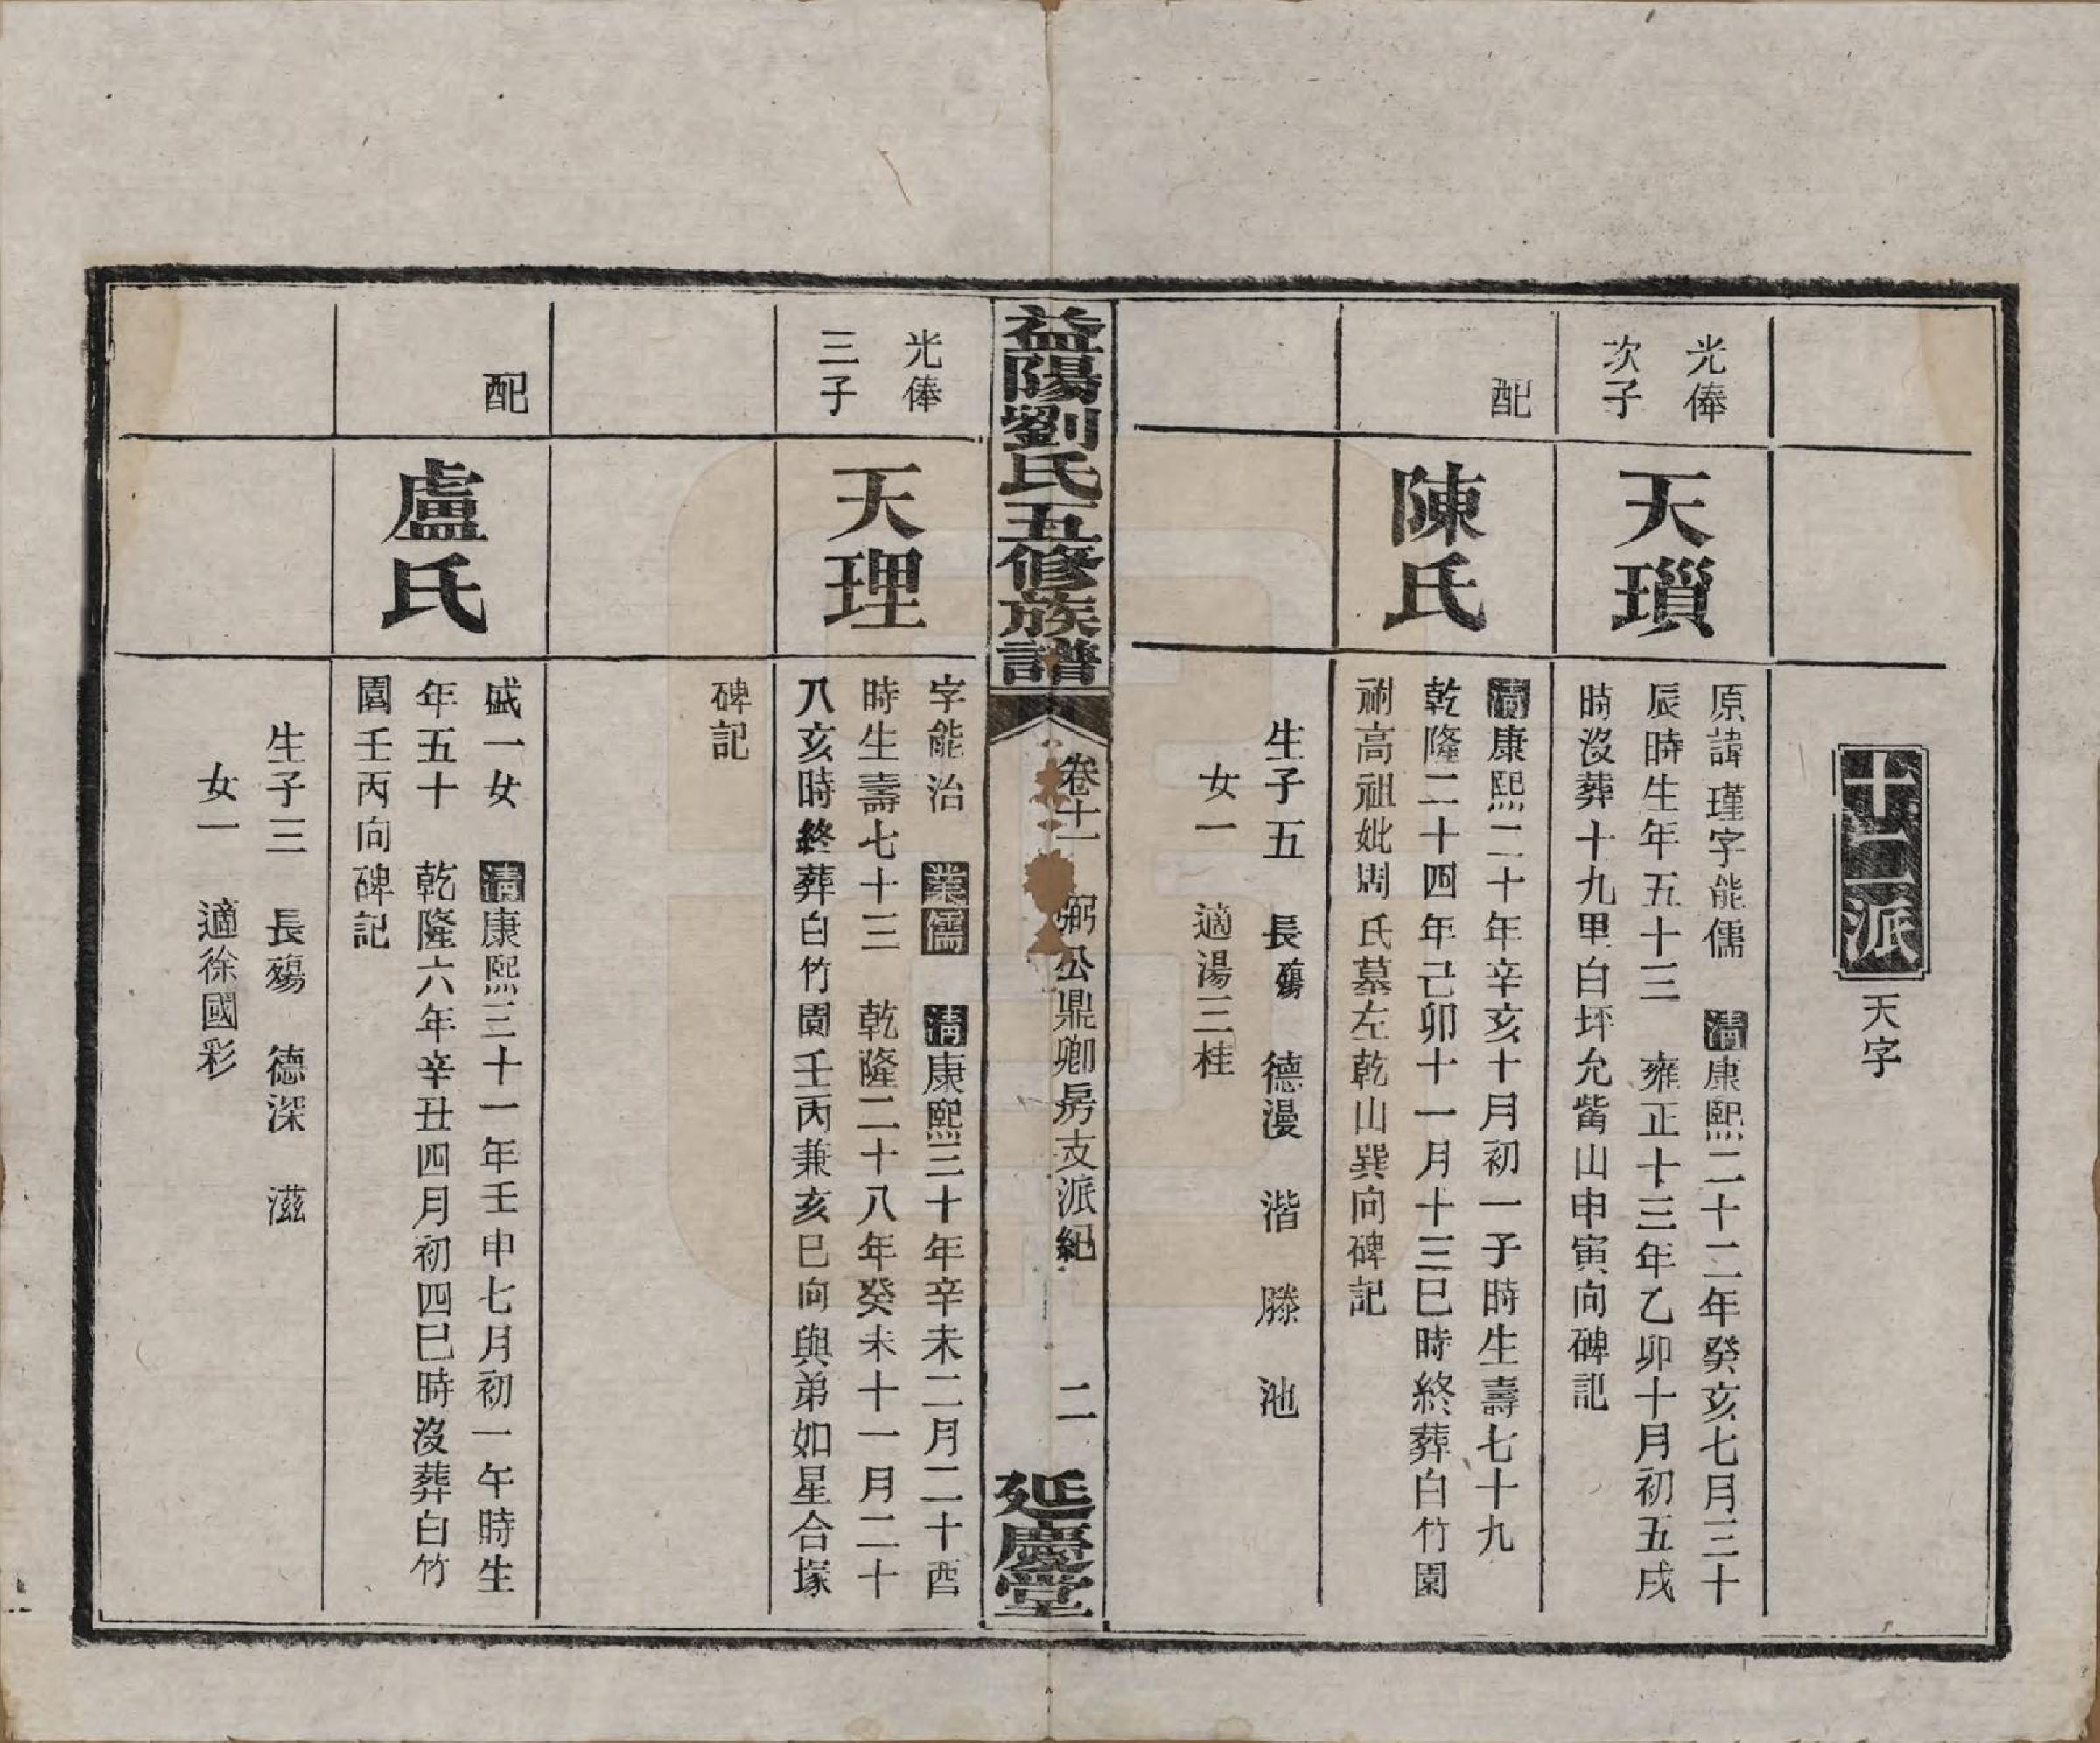 十二派 天字
光俸
次子
天璅
原諱瑾字能儒 清康熙二十二年癸亥七月三十
辰時生年五十三 雍正十三年乙卯十月初五戌
時沒葬十九里白坪允觜山申寅向碑記
配
陳氏
清康熙二十年辛亥十月初一子時生壽七十九
乾隆二十四年己卯十一月十三巳時終葬白竹園
祔高祖妣周氏墓左乾山巽向碑記
生子五 長殤 德漫 湝 滕 池
女一 適湯三桂
益陽劉氏五修族譜
卷十一 弼公鼎卿房支派紀 二
延慶堂
光俸
三子
天理
字能治 業儒 清康熙三十年辛未二月二十酉
時生壽七十三 乾隆二十八年癸未十一月二十
八亥時終葬白竹園壬丙兼亥巳向與弟如星合塚
碑記
配
盧氏
戚一女 清康熙三十一年壬申七月初一午時生
年五十 乾隆六年辛丑四月初四巳時沒葬白竹
園壬丙向碑記
生子三 長殤 德深 滋
女一 適徐國彩